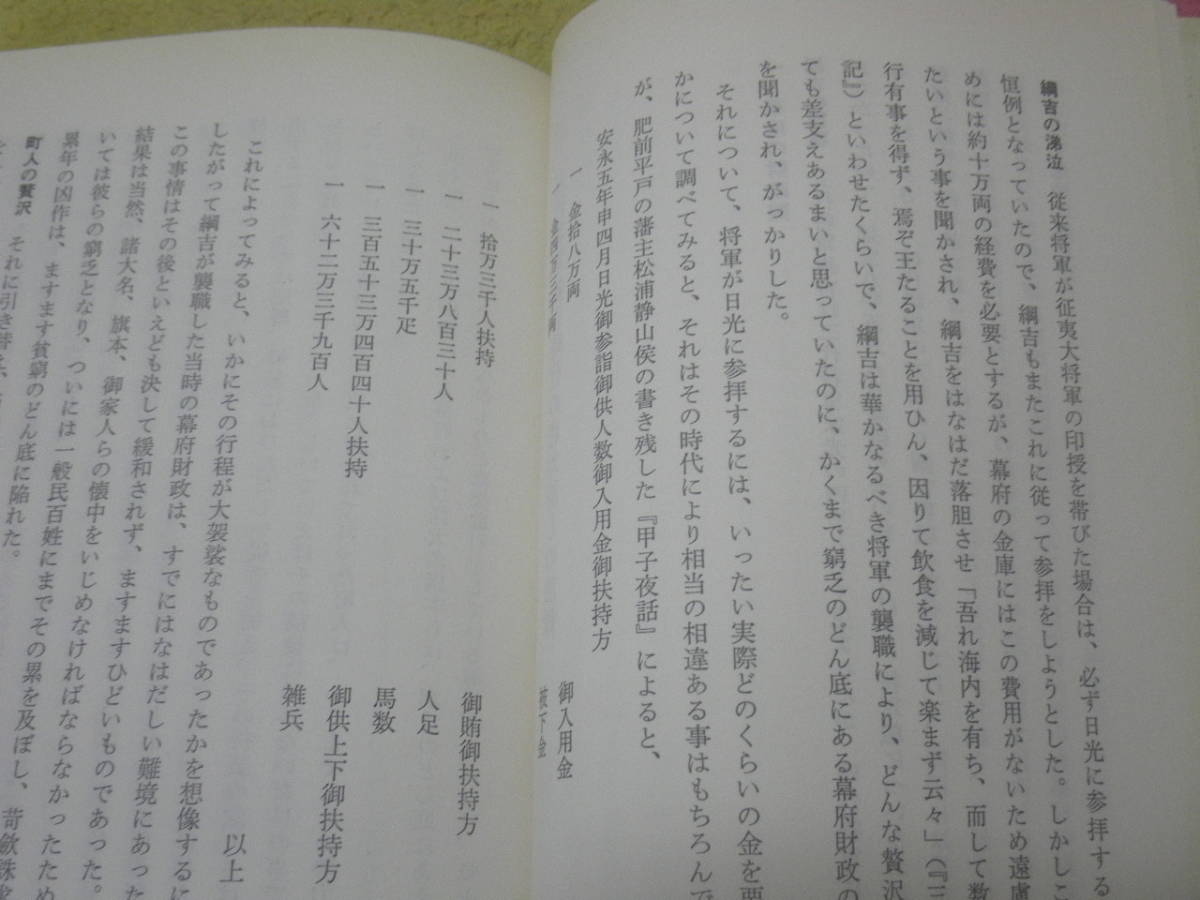 綱吉の涕泣　従来将軍が征夷大将軍の印授を帯びた場合は、必ず日光に参拝する
恒例となっていたので、綱吉もまたこれに従って参拝をしようとした。しかしこ
めには約十万両の経費を必要とするが、幕府の金庫にはこの費用がないため遠慮
たいという事を聞かされ、綱吉をはなはだ落胆させ「吾れ海内を有ち、而して数
行有事を得ず、焉ぞ王たることを用ひん、因りて飲食を減じて楽まず云々」(『三
記』)といわせたくらいで、綱吉は華かなるべき将軍の襲職により、どんな贅沢
ても差支えあるまいと思っていたのに、かくまで窮乏のどん底にある幕府財政の
を聞かされ、がっかりした。
それについて、将軍が日光に参拝するには、いったい実際どのくらいの金を要
かについて調べてみると、それはその時代により相当の相違ある事はもちろんで
が、肥前平戸の藩主松浦静山侯の書き残した『甲子夜話』によると、
安永五年申四月日光御参詣御供人数御入用金御扶持方
一　金拾八万両　御入用金
一　拾万三千人扶持　御賄御扶持方
一　二十三万八百三十人　人足
一　三十万五千疋　馬数
一　三百五十三万四百四十人扶持　御供上下御扶持方
一　六十二万三千九百人　雑兵
以上
これによってみると、いかにその行程が大袈裟なものであったかを想像するに
したがって綱吉が襲職した当時の幕府財政は、すでにはなはだしい難境にあった
この事情はその後といえども決して緩和されず、ますますひどいものであった。
結果は当然、諸大名、旗本、御家人らの懐中をいじめなければならなかったため
いては彼らの窮乏となり、ついには一般民百姓にまでその累を及ぼし、苛斂誅求
累年の凶作は、ますます貧窮のどん底に陥れた。
町人の贅沢　それに引き替え、